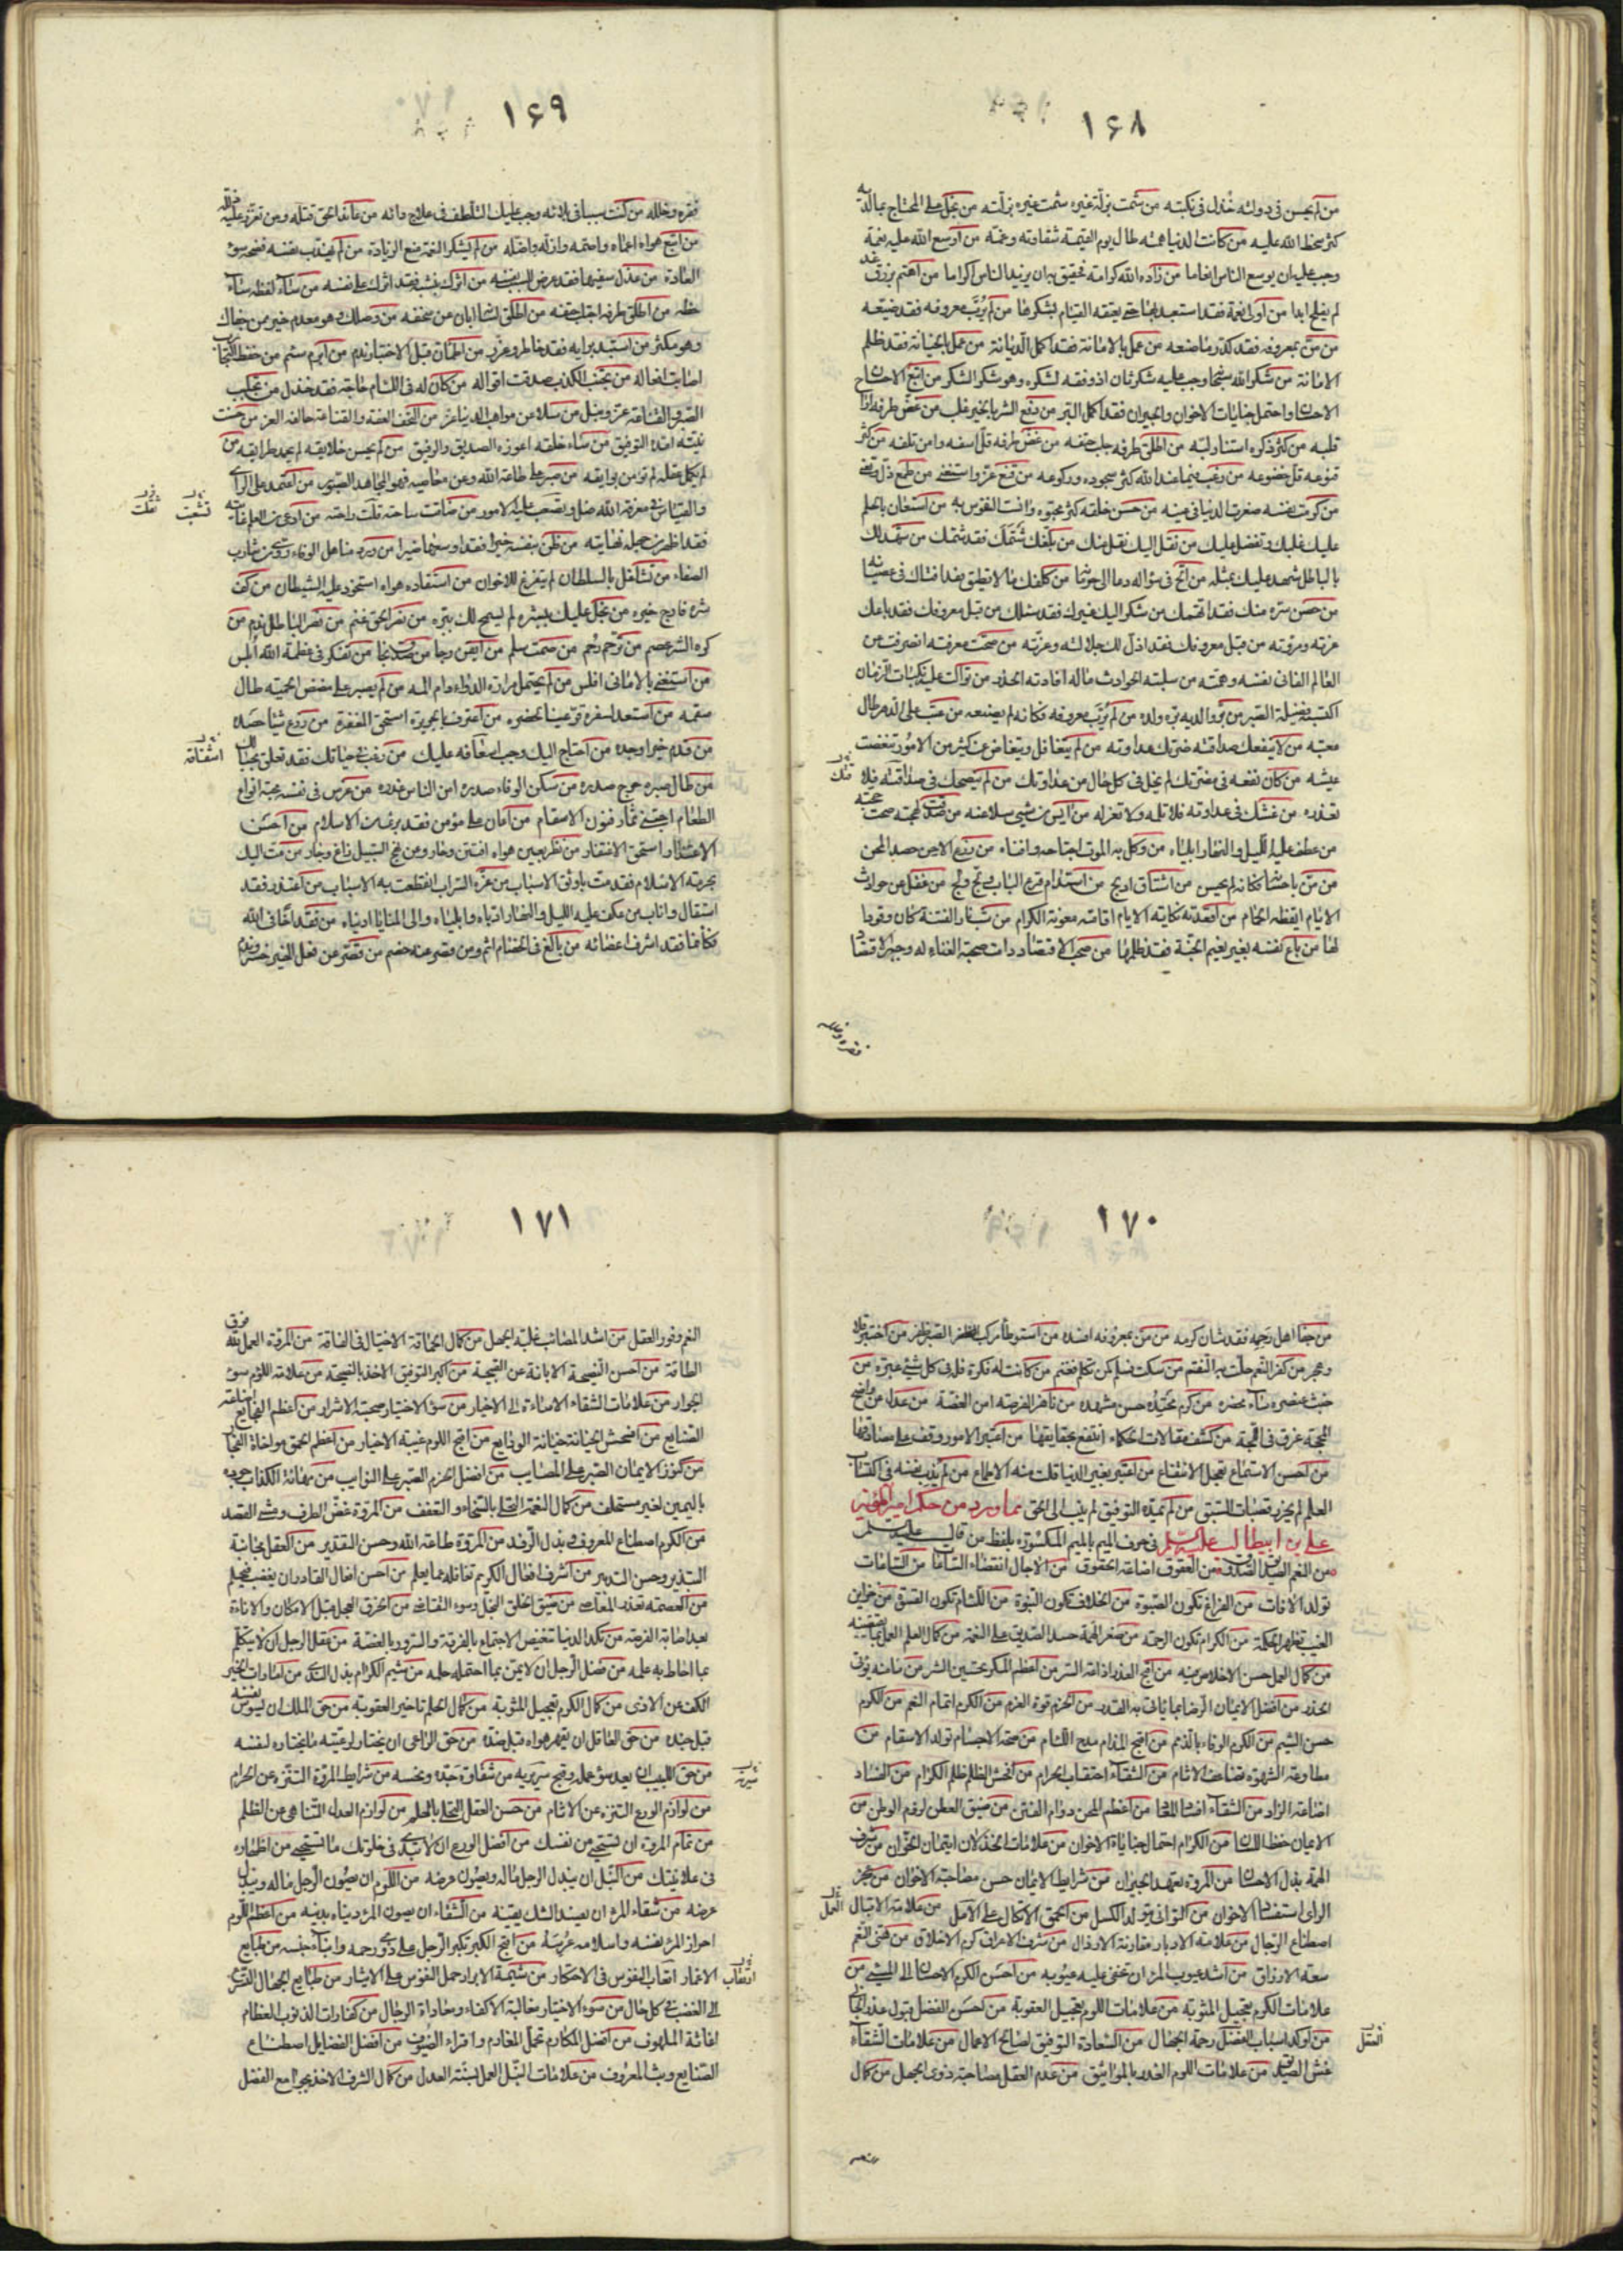 ۱۶۸
من لم يحسن فى دولته خذل فى نكبته من شمت بزلة غيره شمت غيره بزلته من بخل على المحتاج بما لديه
كثر سخط الله عليه من كانت الدنيا همه طال يوم القيمة شقاوته وغمه من اوسع الله عليه نعمه
وجب عليه ان يوسع الناس انعاما من زاده الله كرامة فحقيق به ان يزيد الناس اكراما من اهتم برزق غد
لم يفلح ابدا من اولى نعمة فقد استعبد بها حتى يعتقه القيام بشكرها من لم يرب معروفه فقد ضيعه
من من بمعروفه فقد كدر ما صنعه من عمل بالامانة فقد اكمل الديانة من عمل بالخيانة فقد ظلم
الامانة من شكر الله سبحانه وجب عليه شكر ثان اذ وفقه لشكره وهو شكر الشكر من اتبع الاحسان
الاحسان واحتمل جنايات الاخوان والجيران فقد اكمل البر من دفع الشر بالخير غلب من غض طرفه اراح
قلبه من كثر ذكره استنار لبه من اطلق طرفه جلب حتفه من غض طرفه قل اسفه وامن تلفه من كثر
قنوعه قل خضوعه من رغب فيما عند الله كثر سجوده وركوعه من قنع عز واستغنى من طمع ذل وتعنى
من كرمت نفسه صغرت الدنيا فى عينه من حسن خلقه كثر محبوه وانست النفوس به من استعان بالحلم
عليك غلبك وتفضل عليك من نقل اليك نقل عنك من بلغك شتمك فقد شتمك من شهد لك
بالباطل شهد عليك بمثله من الح فى سؤاله دعا الى حرمانه من كلفك ما لا تطيق فقد افتاك فى عصيانه
من حسن ستره منك فقد اتهمك من شكر اليك غيرك فقد سئلك من قبل معروفك فقد باعك
عزته ومروته من قبل معروفك فقد اذل لك جلالته وعزته من صحت معرفته انصرفت عن
العالم الفانى نفسه وهمته من سلبته الحوادث ماله افادته الحذر من توالت عليه نكبات الزمان
اكتسب فضيلة الصبر من بر والديه بره ولده من لم يرب معروفه فكانه لم يصنعه من عتب على الدهر طال
معتبه من لا ينفعك صداقته ضرتك عداوته من لم يتغافل ويتغاض عن كثير من الامور تنغصت
عيشته من كان نفعه فى مضرتك لم يخل فى كل حال من عداوتك من لم ينصحك فى صداقته فلا
تعذره من غشك فى عداوته فلا تلمه ولا تعزله من ايس من شيى سلا عنه من صدقت لهجته صحت حجته
من عطف عليه الليل والنهار ابلياه من وكل به الموت اجتاحه وافناه من رضى الاحن حصد المحن
من من باحسانه فكانه لم يحسن من اشتاق ادلج من استدام قرع الباب ولج ولج من غفل عن حوادث
الايام ايقظه الحمام من اقعدته نكاية الايام اقامته معونة الكرام من شب نار الفتنة كان وقودا
لها من باع نفسه بغير نعيم الجنة فقد ظلمها من صحب الاقتصاد دامت صحبة الغناء له وجبر الاقتصاد
فقره وخلله
۱۶۹
فقره وخلله من كنت سببا فى بلائه وجب عليك التلطف فى علاج دائه من عاند الحق قتله ومن تعزز عليه ذلله
من اتبع هواه اعماه واصمه وازله واضله من لم يشكر النعمة منع الزيادة من لم يهذب نفسه فضحه سوء
العادة من عذل سفيها فقد عرض للسب نفسه من اثرك بنشبه فقد اثرك على نفسه من ساء لفظه ساء
حظه من اطلق طرفه اجتلب حتفه من اطلق لسانه ابان عن سخفه من وصلك وهو معدم خير ممن جفاك
وهو مكثر من استبد برايه فقد خاطر وغرر من اطمان قبل الاختبار ندم من ابرم سئم من حفظ التجارب
اصابت افعاله من تجنب الكذب صدقت اقواله من كان له فى اللئام حاجة فقد خذل من تجلبب
الصبر والقناعة عز ونبل من سلا عن مواهب الدنيا عز من التحف العفة والقناعة حالفه العز من حسنت
نيته امده التوفيق من ساء خلقه اعوزه الصديق والرفيق من لم يحسن خلايقه لم يحمد طرايقه من
لم يكمل عقله لم تؤمن بوايقه من صبر على طاعة الله وعن معاصيه فهو المجاهد الصبور من اعتمد على الراى
والقياس فى معرفة الله ضل وتصعب عليه الامور من ضاقت ساحته قلت راحته من ادعى من العلم غايته
فقد اظهر من جهله نهايته من ظن بنفسه خيرا فقد اوسعها ضيرا من ورد مناهل الوفاء روى من مشارب
الصفاء من تشاغل بالسلطان لم يتفرغ للاخوان من استقاده هواه استحوذ عليه الشيطان من كف
شره فارج خيره من بخل عليك ببشره لم يسمح لك ببره من نصر الحق غنم من نصر الباطل ندم من
كره الشر عصم من ترحم رحم من صمت سلم من ايقن رجا من صدق نجا من تفكر فى عظمة الله ابلس
من استغنى بالامانى افلس من لم يحتمل مرارة الدواء دام المه من لم يصبر على مضض الحمية طال
سقمه من استعد لسفره قر عينا بحضره من اعترف بالجريرة استحق المغفرة من زرع شيئا حصده
من قدم خيرا وجده من احتاج اليك وجب اسعافه عليك من رغب فى حياتك فقد تعلق بحبالك
من طال صبره حرج صدره من سكن الوفاء صدره امن الناس غدره من غرس فى نفسه محبة انواع
الطعام اجتنى ثمار فنون الاسقام من اعان على مؤمن فقد برئ من الاسلام من احسن
الاعتذار استحق الاغتفار من نظر بعين هواه افتتن وجار ومن نهج السبيل زاغ وجار من مت اليك
بحرمة الاسلام فقد مت باوثق الاسباب من غره السراب انقطعت به الاسباب من اعتذر فقد
استقال واناب من عكف عليه الليل والنهار ادباه وابلياه والى المنايا ادنياه من فقد اخا فى الله
فكانما فقد اشرف اعضائه من بالغ فى الخصام اثم ومن قصر عنه خصم من قصر عن فعل الخير خسر وندم
اشفاقه
۱۷۰
من جفا اهل رحمه فقد شان كرمه من من بمعروفه افسده من استوطا مركب الصبر ظفر من اختبر قلا
وهجر من كفر النعم حلت به النقم من سكت فسلم كمن تكلم فغنم من كانت له فكرة فله فى كل شىء عبرة من
خبث عنصره ساء محضره من كرم محتده حسن مشهده من ناهز الفرصة امن الغصة من عدل عن واضح
المحجة غرق فى اللجة من كشف مقالات الحكماء انتفع بحقايقها من اعتبر الامور وقف على مصادقها
من احسن الاستماع تعجل الانتفاع من اعتبر بغير الدنيا قلت منه الاطماع من لم يذب نفسه فى اكتساب
العلم لم يحرز قصبات السبق من لم يمده التوفيق لم ينب الى الحق مما ورد من حكم امير المؤمنين
على بن ابيطالب عليه السلم فى حرف الميم بالميم المكسورة بلفظ من قال عليه السلم
من النعم الصديق الصدوق من العقوق اضاعة الحقوق من الاجال انقضاء الساعات من الساعات
تولد الافات من الفراغ تكون الصبوة من الخلاف تكون النبوة من اللئام تكون القسوة من خزاين
الغيب تظهر الحكمة من الكرام تكون الرحمة من صغر الهمة حسد الصديق على النعمة من كمال العلم العمل بما يقتضيه
من كمال العمل حسن الاخلاص فيه من اقبح الغدر اذاعة السر من اعظم المكر تحسين الشر من مامنه يؤتى
الحذر من افضل الايمان الرضا بما ياتى به القدر من الحزم قوة العزم من الكرم اتمام النعم من الكرم
حسن الشيم من الكرم الوفاء بالذمم من اقبح المذام مدح اللئام من صحة الاجسام تولد الاسقام من
مطاوعة الشهوة تضاعف الاثام من الشقاء احتقاب الحرام من افحش الظلم ظلم الكرام من الفساد
اضاعة الزاد من الشقاء افساد المعاد من اعظم المحن دوام الفتن من ضيق العطن لزوم الوطن من
الايمان حفظ اللسان من الكرام احتمال جنايات الاخوان من علامات الخذلان ايتمان الخوان من شرف
الهمة بذل الاحسان من المروة تعهد الجيران من شرايط الايمان حسن مصاحبة الاخوان من عجز
الراى استفساد الاخوان من التوانى يتولد الكسل من الحمق الاتكال على الامل من علامة الاقبال
اصطناع الرجال من علامة الادبار مقارنة الارذال من شرف الاعراق كرم الاخلاق من هنى النعم
سعة الارزاق من اشد عيوب المرء ان تخفى عليه عيوبه من احسن الكرم الاحسان الى المسىء من
علامات الكرم تعجيل المثوبة من علامات اللوم تعجيل العقوبة من احسن الفضل قبول عذر الجانى
من اوكد اسباب العقل رحمة الجهال من السعادة التوفيق لصالح الاعمال من علامات الشقاء
غش الصديق من علامات اللوم الغدر بالمواثيق من عدم العقل مصاحبة ذوى الجهل من كمال
العمل
الفضل
۱۷۱
النعم وفور العقل من اشد المصائب غلبة الجهل من كمال الحماقة الاختيال فى الفاقة من المروة العمل لله فوق
الطاقة من احسن النصيحة الابانة عن القبيحة من اكبر التوفيق الاخذ بالنصيحة من علامة اللؤم سوء
الجوار من علامات الشقاء الاساءة الى الاخيار من سوء الاختيار صحبة الاشرار من اعظم الفجايع اضاعة
الصنايع من افحش الخيانة خيانة الودايع من اقبح اللوم غيبة الاخيار من اعظم الحمق مواخاة الفجار
من كنوز الايمان الصبر على المصايب من افضل الحزم الصبر على النوايب من مهانة الكذاب جوده
باليمين لغير مستحلف من كمال النعمة التحلى بالسخاء والتعفف من المروة غض الطرف ومشى القصد
من الكرم اصطناع المعروف وبذل الرفد من المروة طاعة الله وحسن التقدير من العقل مجانبة
التبذير وحسن التدبير من اشرف افعال الكريم تغافله عما يعلم من احسن افعال القادر ان يغضب فيحلم
من العصمة تعذر المعاصى من ضيق الخلق البخل وسوء التقاضى من الخرق العجل قبل الامكان والاناءة
بعد اصابة الفرصة من نكد الدنيا تنغيص الاجتماع بالفرقة والسرور بالغصة من عقل الرجل ان لا يتكلم
بما احاط به علمه من فضل الرجل ان لا يمن بما احتمله حلمه من شيم الكرام بذل الندى من امارات الخير
الكف عن الاذى من كمال الكرم تعجيل المثوبة من كمال الحلم تاخير العقوبة من حق الملك ان يسوس نفسه
قبل جنده من حق العاقل ان يقهر هواه قبل ضده من حق الراعى ان يختار لرعيته ما يختاره لنفسه
من حق اللبيب ان يعد سوء عمله وقبح سيرته من شقاوة جده ونحسه من شرايط المروة التنزه عن الحرام
من لوازم الورع التنزه عن الاثام من حسن العقل التحلى بالحلم من لوازم العدل التناهى عن الظلم
من تمام المروة ان تستحيى من نفسك من افضل الورع ان لا تبدى فى خلوتك ما تستحيى من اظهاره
فى علانيتك من النبل ان يبذل الرجل ماله ويصون عرضه من اللوم ان يصون الرجل ماله ويبذل
عرضه من شقاء المرء ان يفسد الشك يقينه من الشقاء ان يصون المرء دنياه بدينه من اعظم اللوم
احراز المرء نفسه واسلامه عرسه من اقبح الكبر تكبر الرجل على ذوى رحمه وابناء جنسه من طبايع
الاغمار اتعاب النفوس فى الاحتكار من شيمة الابرار حمل النفوس على الايثار من طبايع الجهال التسرع
الى الغضب فى كل حال من سوء الاختيار مغالبة الاكفاء ومعاداة الرجال من كفارات الذنوب العظام
اغاثة الملهوف من افضل المكارم تحمل المغارم واقراء الضيوف من افضل الفضايل اصطناع
الصنايع وبث المعروف من علامات النبل العمل بسنة العدل من كمال الشرف الاخذ بجوامع الفضل